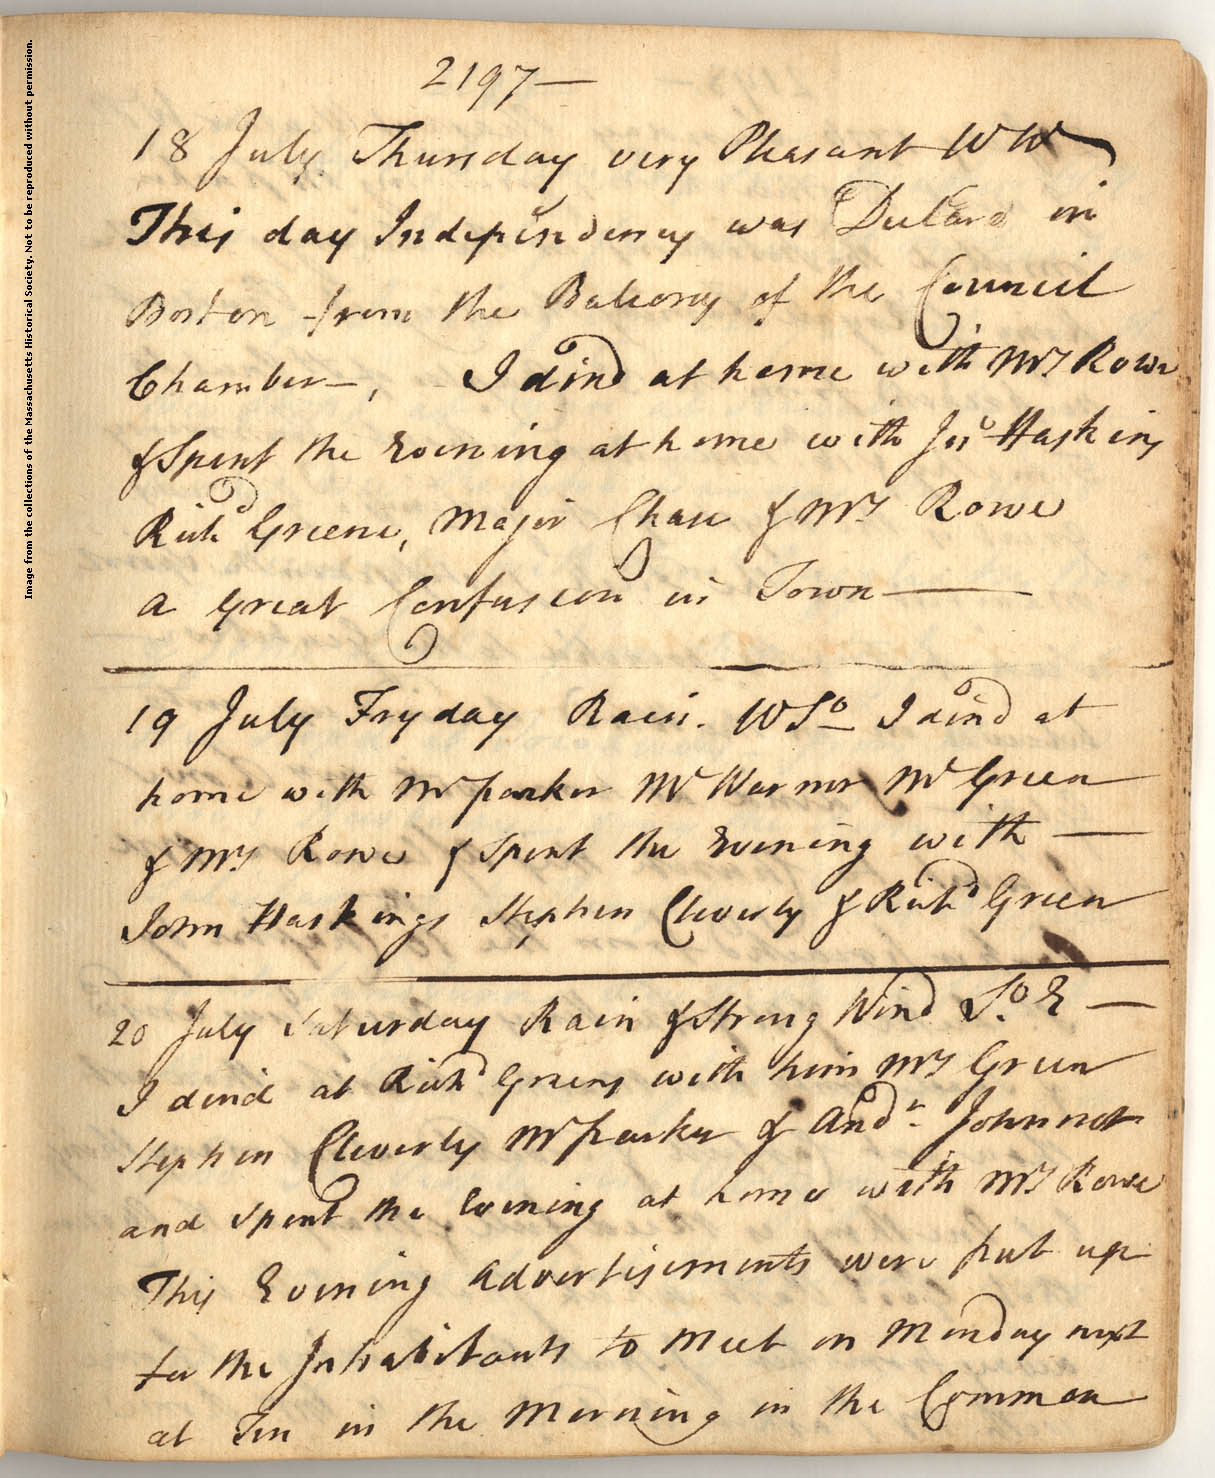 Image from the collections of the Massachusetts Historical Society. Not to be reproduced without permission.
2197—
18 July Thursday very Pleasant W W
This day Independency was Declard in
Boston from the Balcony of the Council
Chamber—, I dind at home with Mrs Rowe
& Spent the Evening at home with Jno Haskins
Richd Greene, Major Chase & Mrs Rowe
a Great Confusion in Town—
19 July Fryday Rain. W So I dind at
home with Mr parker Mr Warner Mr Green
& Mrs Rowe & Spent the Evening with —
John Haskings Stephen Cleverly & Richd Green
20 July Saturday Rain & Strong Wind So. E —
I dind at Richd Greens with him Mrs Green
Stephen Cleverly Mr parker & Andr. Johnnot
and spent the Evening at home with Mrs Rowe
This Evening Advertisements were put up
for the Inhabitants to Meet on Monday next
at Ten in the Morning in the Common